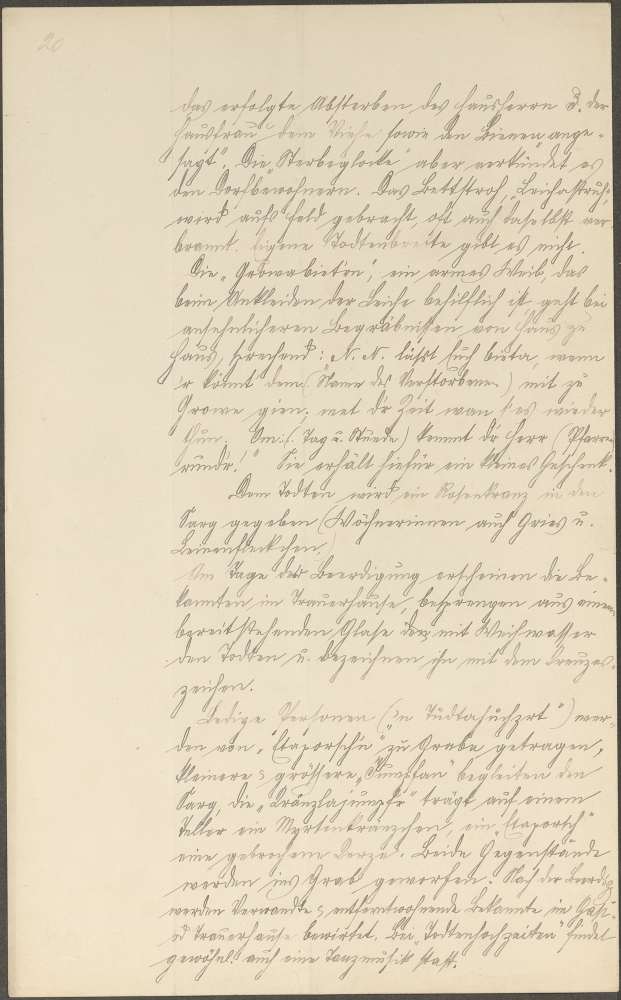 20
das erfolgte Absterben des Hausherrn u. der
Hausfrau "dem Viehe sowie den Bienen ange-
sagt". Die "Sterbeglocke" aber verkündet es
den Dorfbewohnern. Das Bettstroh, "Leichastruh"
wird aufs Feld gebracht, oft auch daselbst ver-
brannt. Eigene Todtenbrette gibt es nicht.
Die "Growabieterin", ein armes Weib, das
beim Ankleiden der Leiche behilflich ist, geht bei
ansehnlicheren Begräbnissen von Haus zu
Haus, sprechend: N. N. lässt sich bieta, wenn
'r könnt dem (Name des Verstorbenen) mit zu
Growe gien, met dr Zeit wan s' es wieder
thun. Om (Tag u. Stunde) kemmt dr Herr (Pfarrer
rundr!" Sie erhält hiefür ein kleines Geschenk.
Dem Todten wird ein Rosenkranz in den
Sarg gegeben (Wöchnerinnen auch Gries u.
Leinenfleckchen.)
Am Tage der Beerdigung erscheinen die Be-
kannten im Trauerhause, besprengen aus einem
bereitstehenden Glase mit Weihwasser
den Todten u. bezeichnen ihn mit dem Kreuzes-
zeichen.
Ledige Personen ("In Tudtahuchzt") wer-
den von "Staporschn" zu Grabe getragen,
kleinere u. größere "Jumpfan" begleiten den
Sarg, die "Kränzlajumpfr" trägt auf einem
Teller ein Myrtenkränzchen, ein "Staporsch"
eine gebrochene Kerze. Beide Gegenstände
werden ins Grab geworfen. Nach der Beerdig.
werden Verwandte u. entferntwohnende Bekannte im Gast-
od Trauerhause bewirtet. Bei "Todtenhochzeiten" findet
gewöhnl. auch eine Tanzmusik statt.